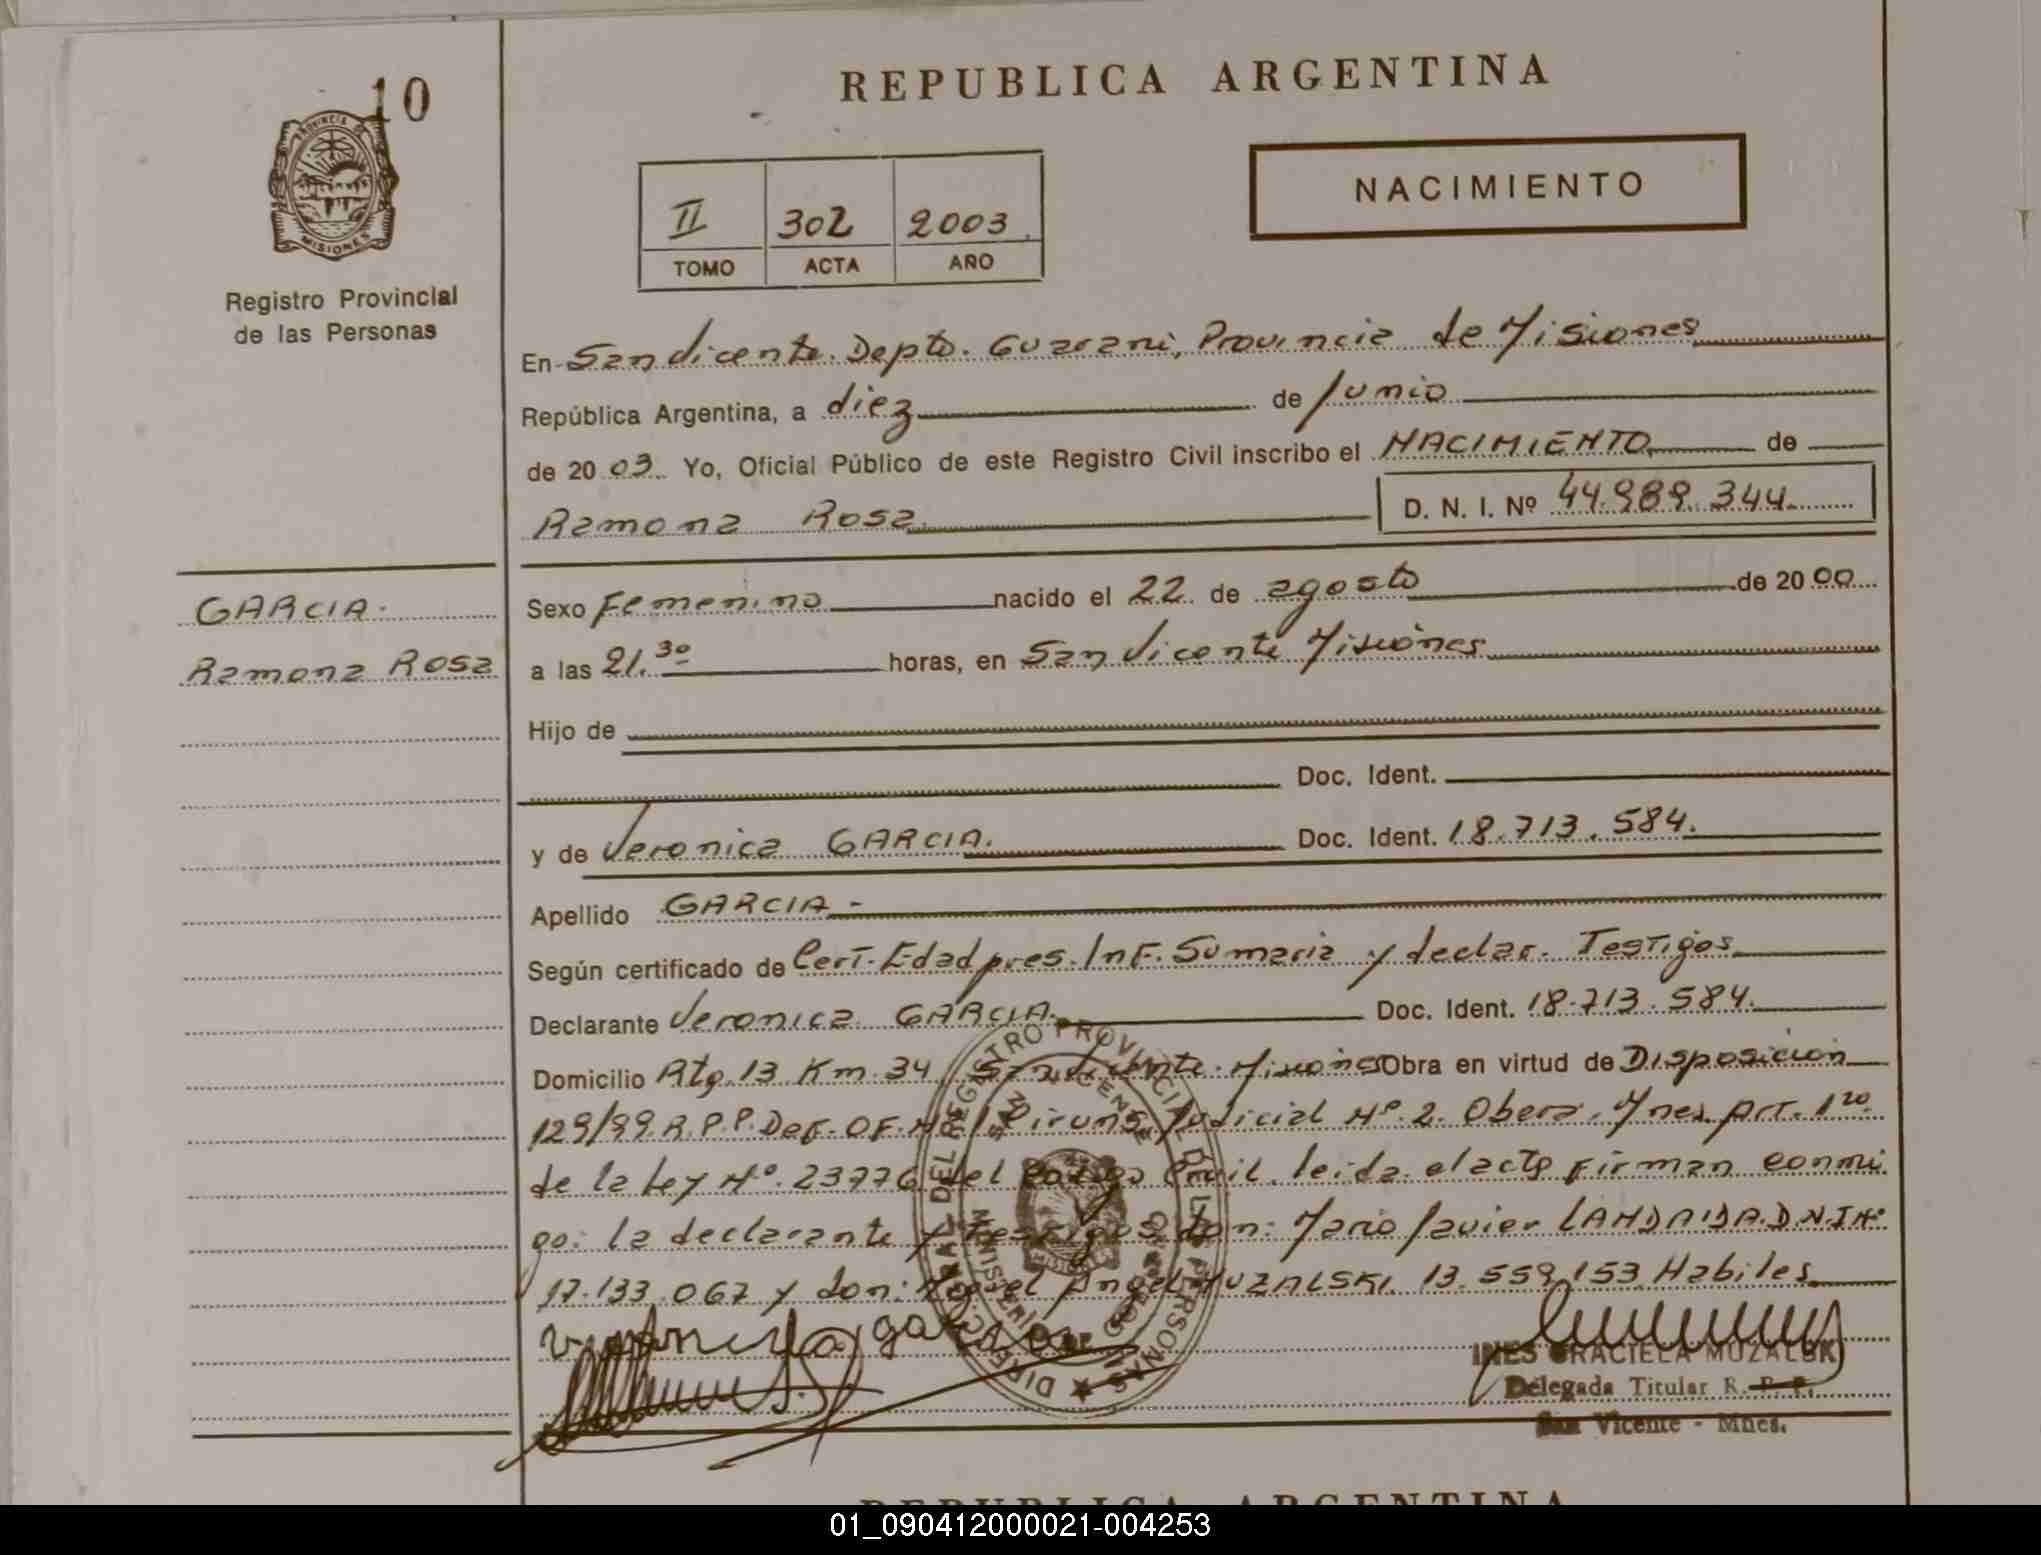 REPUBLICA ARGENTINA
10
PROVINCIA DE
MISIONES
Registro Provincial
de las Personas
NACIMIENTO
II 302 2003
TOMO ACTA AÑO
En San Vicente. Depto. Guarani, Provincia de Misiones
República Argentina, a diez de Junio
de 2003. Yo, Oficial Público de este Registro Civil inscribo el NACIMIENTO de
Ramona Rosa D. N. I. Nº 44.989.344
GARCIA.
Ramona Rosa
Sexo Femenino nacido el 22 de agosto de 2000
a las 21.30 horas, en San Vicente Misiones
Hijo de
Doc. Ident.
y de Veronica GARCIA. Doc. Ident. 18.713.584.
Apellido GARCIA -
Según certificado de Cert. Edad pres. Inf. Sumaria y declar. Testigos
Declarante Veronica GARCIA. Doc. Ident. 18.713.584.
Domicilio Rta. 13 Km. 34 San Vicente. Misiones Obra en virtud de Disposicion
129/99. R.P.P. Def. OF. Nº 1 Circuns. Judicial Nº 2. Obera. Mnes. Art. 1ro.
de la Ley Nº 23776 del Codigo Civil. leida el acta Firman conmi
go: la declarante y testigos don: Mario Javier LANDAIDA. D.N.I Nº
17.133.067 y don: Miguel Angel MUZALSKI. 13.559.153. Habiles
garcia
INES GRACIELA MUZALSKI
Delegada Titular R. P. P.
San Vicente - Mnes.
REPUBLICA ARGENTINA
01_090412000021-004253